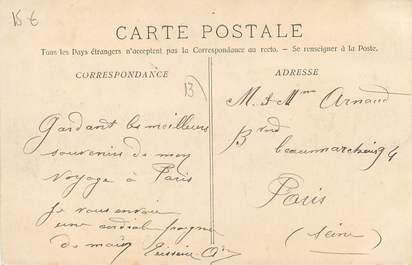 15 €
CARTE POSTALE
Tous les Pays étrangers n'acceptent pas la Correspondance au recto. — Se renseigner à la Poste.
CORRESPONDANCE
13
Gardant les meilleurs
souvenirs de mon
voyage à Paris
Je vous envoie
une cordiale poigné
de main
ADRESSE
M. & Mme Arnaud
Bvard
beaumarchais 94
Paris
(Seine)